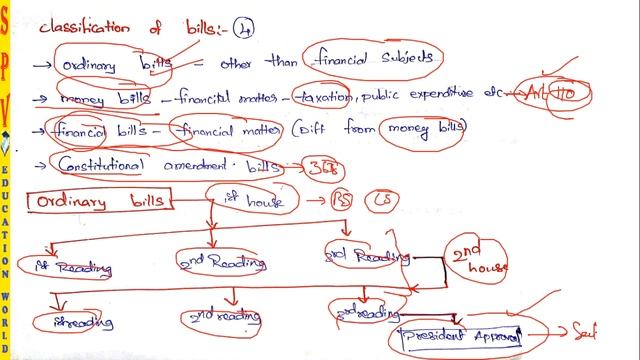 SPV EDUCATION WORLD
classification of bills:- 4
→ ordinary bills = other than financial subjects
→ money bills - financial matter - taxation, public expenditure etc → Art 110
→ financial bills - financial matter (Diff from money bills)
→ Constitutional amendment bills → 368
ordinary bills ist house → RS LS
ist Reading 2nd Reading 3rd Reading 2nd house
ist reading 2nd reading 3rd reading
President Approval →